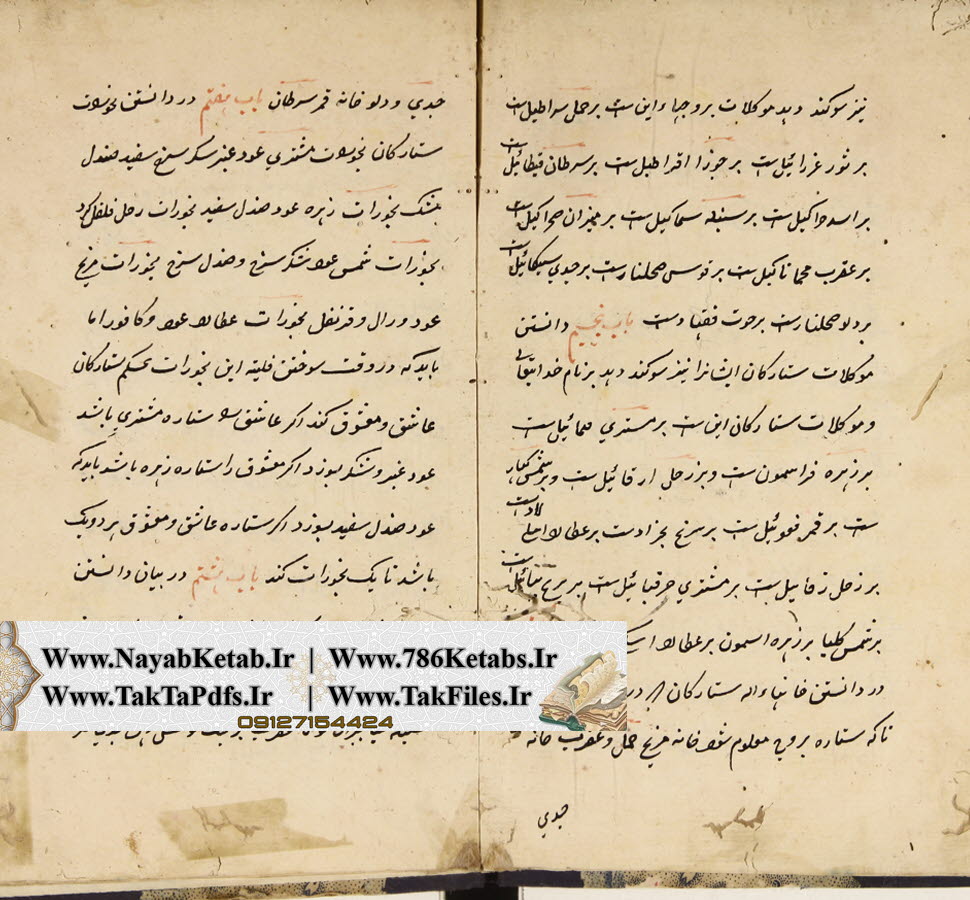 نیز سوکند دهد موکلات بروجها و این ست بر حمل سراطیل ست
بر ثور عزرائیل ست بر جوزا اقراطیل ست بر سرطان قیطائیل ست
بر اسد حراکیل ست بر سنبله سماکیل ست بر میزان صحراکیل ست
بر عقرب ست بر قوس صحلنارست بر جدي سیکائیل ست
بر دلو صحلنارست بر حوت فقهادست باب پنجیم دانستن
موکلات ستارکان ایشانرا نیز سوکند دهد بر نام خدایتعالی
و موکلات ستارکان این ست بر مشتري صمائیل ست
بر زهره فراسمون ست و بر زحل ارقائیل ست و بر شمس
ست بر قمر فعوئیل ست بر مریخ بخرادست بر عطارد
بر زحل زقاییل ست بر مشتري حرقیائیل ست بر مریخ ست
بر شمس کلیا بر زهره اسمون بر عطارد
در دانستن خانهاء ستارکان
تا که ستاره بروج معلوم شود خانه مریخ حمل و عقرب خانه
جدي
جدي و دلو خانه قمر سرطان باب هفتم در دانستن بخورات
ستارکان بخورات مشتري عود عنبر سکر سرخ سفید صندل
مشک بخورات زهره عود صندل سفید بخورات زحل فلفل کرد
بخورات شمس عود شکر سرخ و صندل سرخ بخورات مریخ
عود و رال و قرنفل بخورات عطارد عود و کافور اما
باید که در وقت سوختن فلیته این بخورات بحکم ستارکان
عاشق و معشوق کند اکر عاشق را ستاره مشتري باشد
عود عنبر و شکر بسوزد اکر معشوق را ستاره زهره باشد باید که
عود صندل سفید بسوزد اکر ستاره عاشق و معشوق هر دو یک
باشد تا یک بخورات کند باب هشتم در بیان دانستن
Www.NayabKetab.Ir | Www.786Ketabs.Ir
Www.TakTaPdfs.Ir | Www.TakFiles.Ir
09127154424